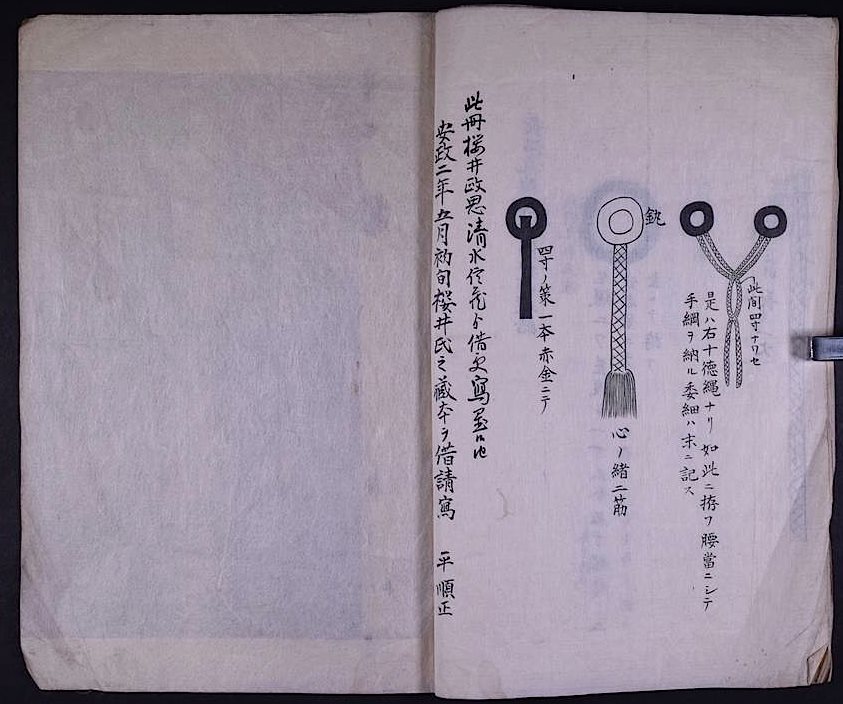 此间四寸ナワセ
是ハ右十徳縄ナリ 如此ニ拵フ腰當ニシテ
手綱ヲ納ル委細ハ末ニ記ス
心ノ緒二筋
四寸ノ策一本赤金ニテ
此冊桜井政恩清水
借 寫置
安政二年五月初旬桜井氏之藏本ヲ借請寫 平順正